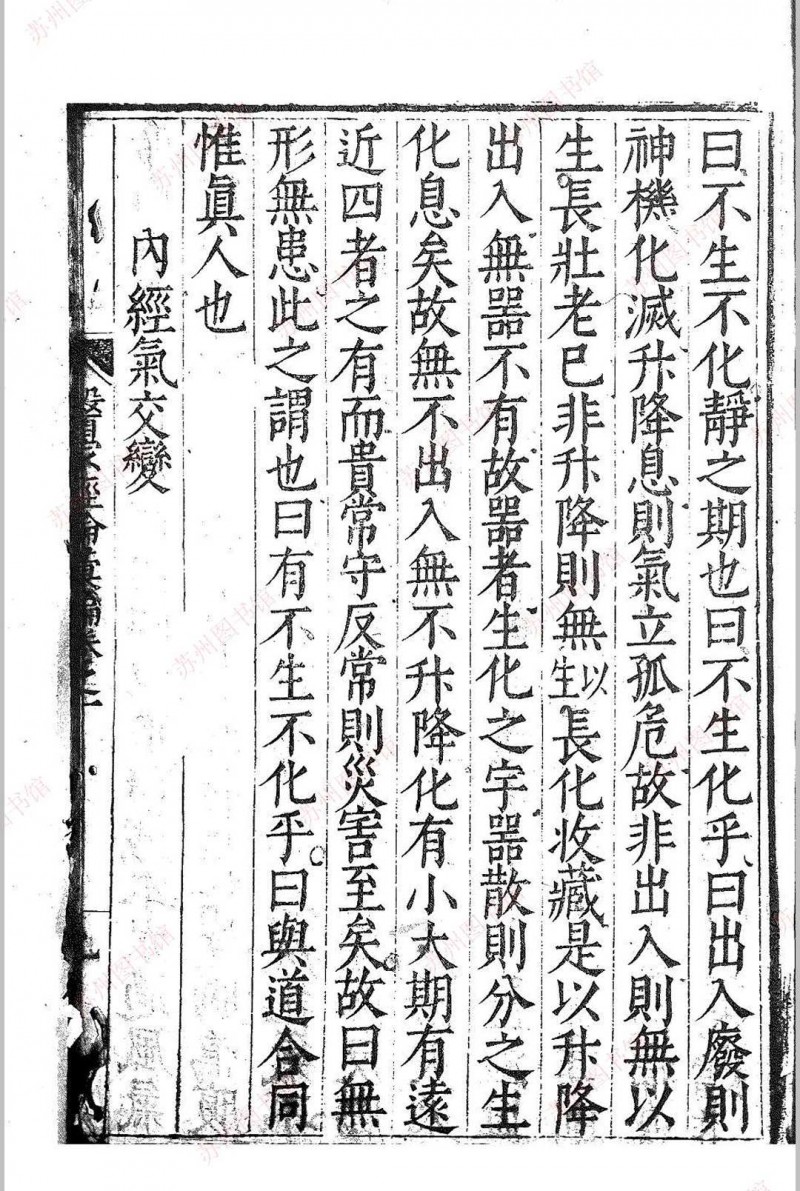 曰不生不化靜之期也曰不生化乎曰出入廢則
神機化滅升降息則氣立孤危故非出入則無以
生長壯老已非升降則無以生長化收藏是以升降
出入無器不有故器者生化之宇器散則分之生
化息矣故無不出入無不升降化有小大期有遠
近四者之有而貴常守反常則災害至矣故曰無
形無患此之謂也曰有不生不化乎曰與道合同
惟眞人也
內經氣交變
苏州图书馆